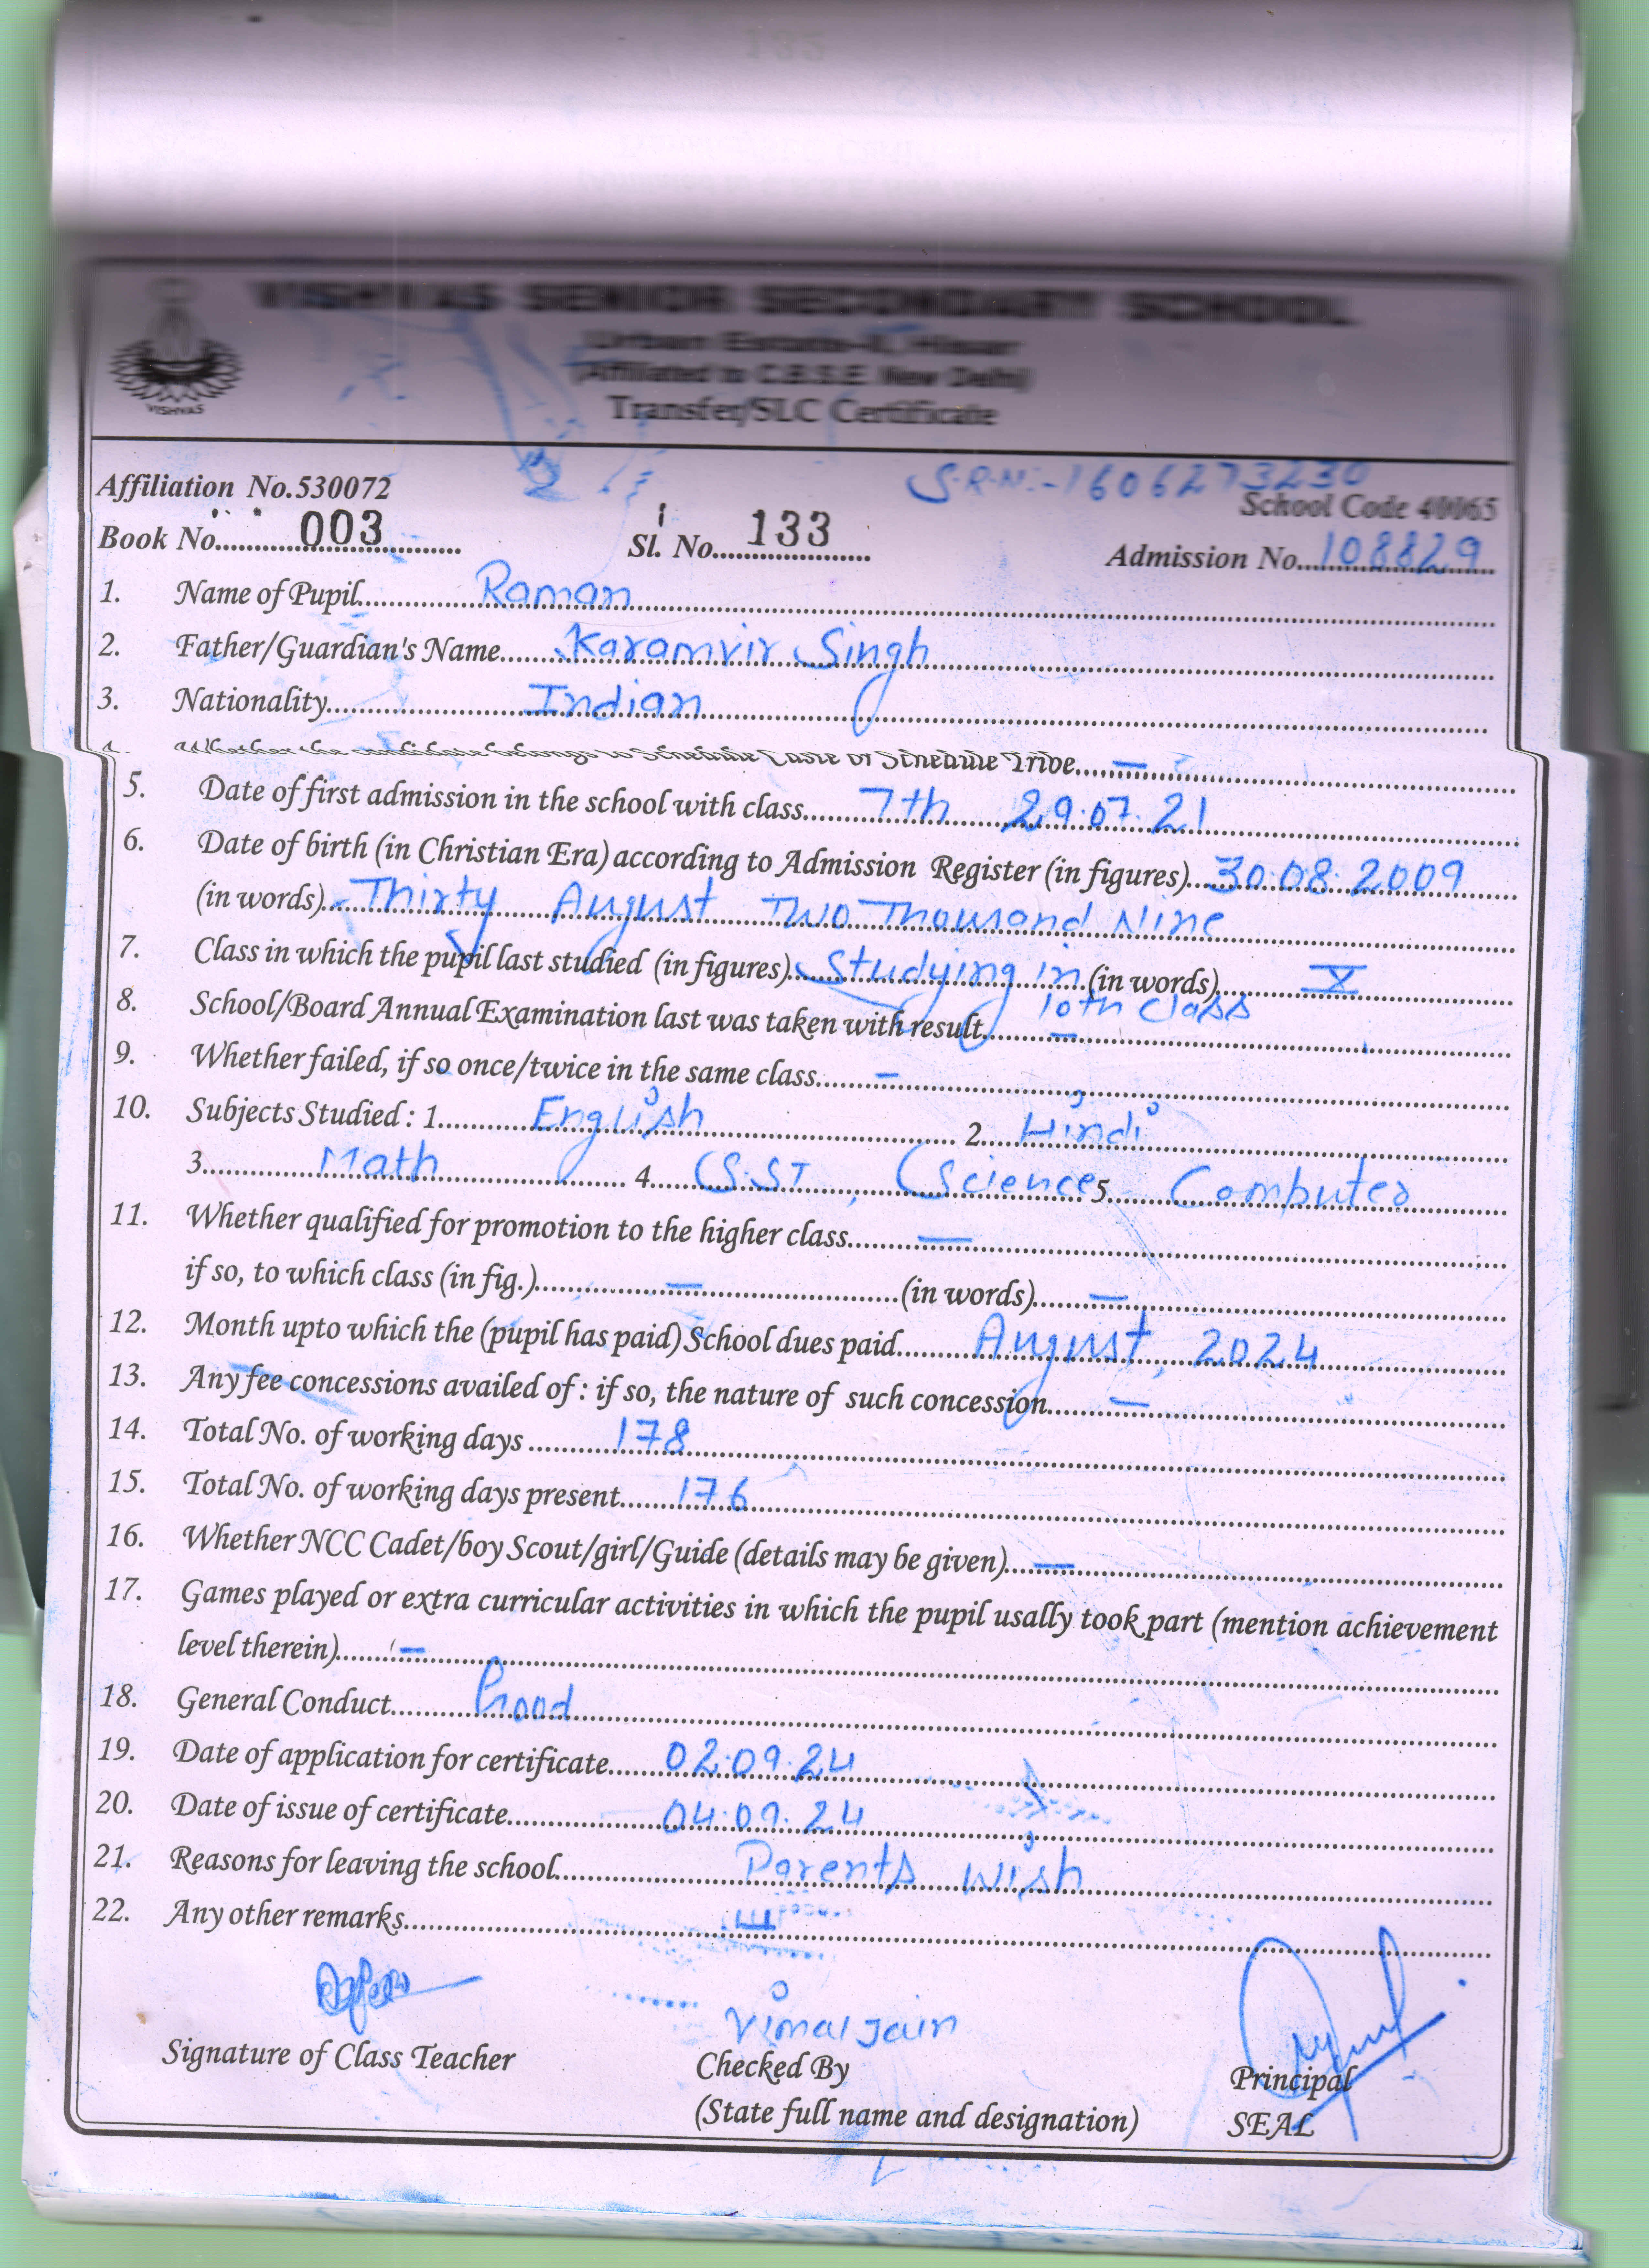 VISHVAS SENIOR SECONDARY SCHOOL
Urban Estate-II, Hisar
(Affiliated to C.B.S.E. New Delhi)
VISHVAS
Transfer/SLC Certificate
S.R.N:-1606273230
Affiliation No.530072 School Code 40065
Book No. 003 Sl. No. 133 Admission No. 108829
1. Name of Pupil Raman
2. Father/Guardian's Name Karamvir Singh
3. Nationality Indian
4. Whether the candidate belongs to Schedule Caste or Schedule Tribe —
5. Date of first admission in the school with class 7th 29.07.21
6. Date of birth (in Christian Era) according to Admission Register (in figures) 30.08.2009
(in words) Thirty August Two Thousand Nine
7. Class in which the pupil last studied (in figures) Studying in (in words) X
10th class
8. School/Board Annual Examination last was taken with result —
9. Whether failed, if so once/twice in the same class —
10. Subjects Studied : 1. English 2. Hindi
3. Math 4. S.ST, Science 5. Computer
11. Whether qualified for promotion to the higher class —
if so, to which class (in fig.) — (in words) —
12. Month upto which the (pupil has paid) School dues paid August, 2024
13. Any fee concessions availed of : if so, the nature of such concession —
14. Total No. of working days 178
15. Total No. of working days present 176
16. Whether NCC Cadet/boy Scout/girl/Guide (details may be given) —
17. Games played or extra curricular activities in which the pupil usally took part (mention achievement
level therein) —
18. General Conduct Good
19. Date of application for certificate 02.09.24
20. Date of issue of certificate 04.09.24
21. Reasons for leaving the school Parents wish
22. Any other remarks
Vimal Jain
Signature of Class Teacher Checked By Principal
(State full name and designation) SEAL